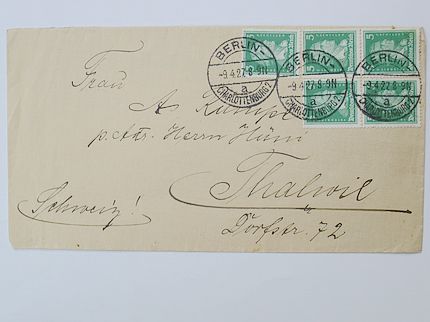 BERLIN-
-9.4.27.8-9N
a
CHARLOTTENBURG 2
BERLIN-
-9.4.27.8-9N
a
CHARLOTTENBURG 2
BERLIN-
-9.4.27.8-9N
a
CHARLOTTENBURG 2
5
5
5
Frau
A.
p. Adr. Herrn
Thalwil
Schweiz!
Dorfstr. 72